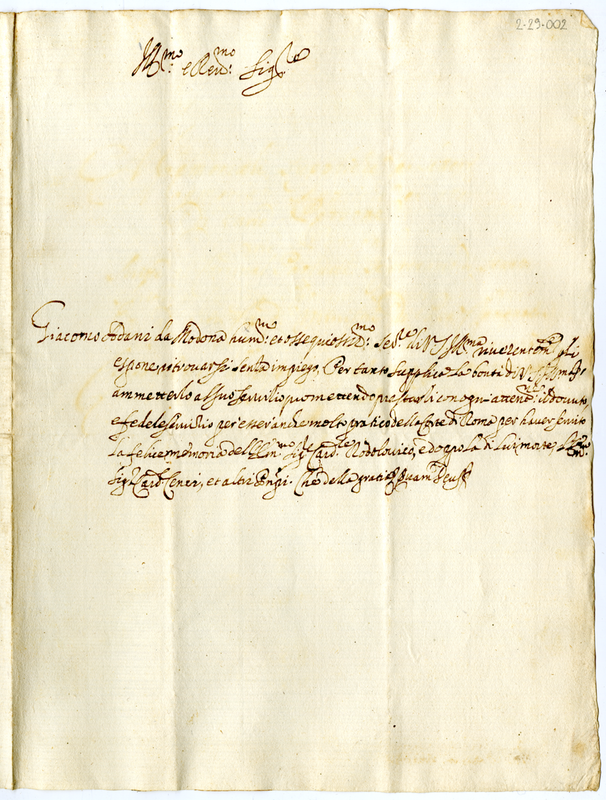 2-29-002
Ill.mo e Reu.mo Sig.re
Giacomo Adani da Modona hum.mo et ossequiosiss.mo Ser.re di V S Ill.ma riuerentem.te gli
espone ritrouarsi senza impiego. Per tanto supplica la bontà di V S Ill.ma
ammetterlo al suo seruitio promettendo prestarli con ogn' atten.ne il douuto,
e fedele seruitio per esser anche molto pratico della Corte di Roma per hauer seruito
la felice memoria dell' Em.mo Sig.r Card.le Rodolouico, e doppo la di lui morte
Sig.r Card. Cenci, et altri Che della gratia Quam Deus